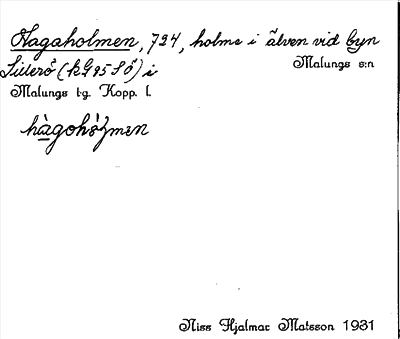 Hagaholmen, 724, holme i älven vid byn
Sillerö (kG 95 S Ö) i Malungs s:n
Malungs tg. Kopp. l.
hàgohò̀lmen
Niss Hjalmar Matsson 1931